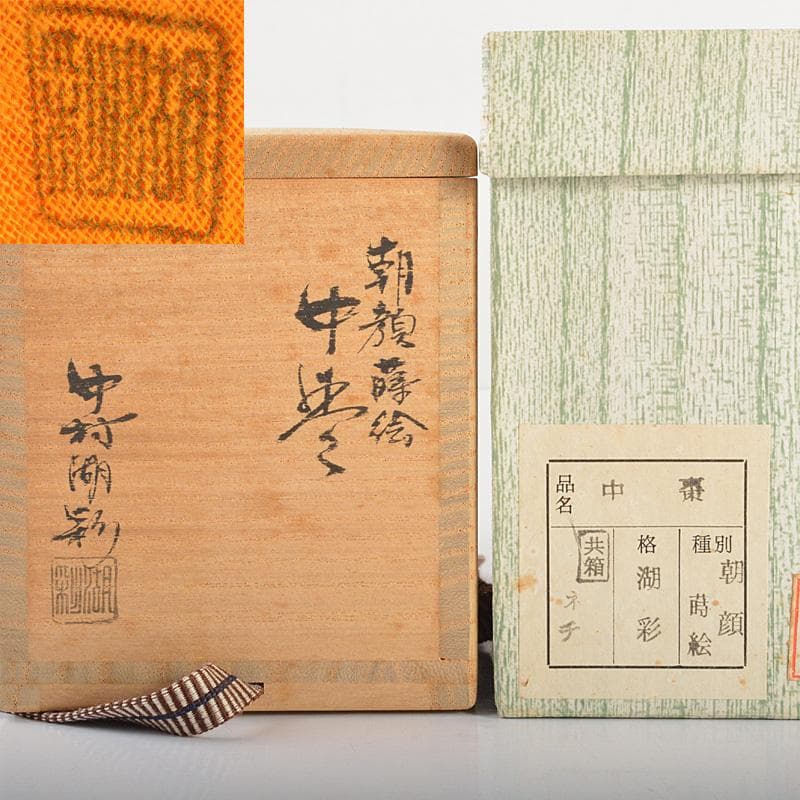 朝顔蒔絵
中棗
中村湖彩
湖彩
品名 中棗
種別 朝顔蒔絵
格 湖彩
共箱
ネチ